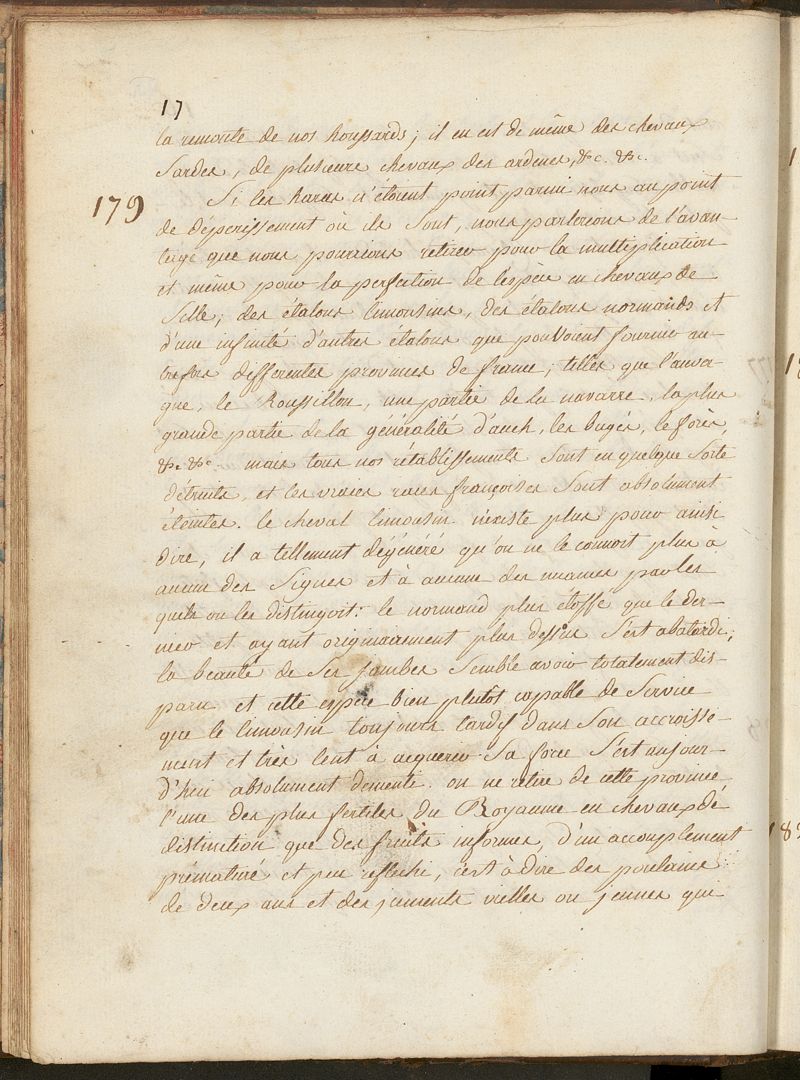 17
la remonte de nos houssards; il en est de même des chevaux
Sardes, de plusieurs chevaux des ardenes, &c. &c.
179
Si les haras n'étoient point parmi nous au point
de dépérissement où ils sont, nous parlerions de l'avan-
tage que nous pourrions retirer pour la multiplication
et même pour la perfection de l'espèce en chevaux de
Selle, des étalons limousins, des étalons normands et
d'une infinité d'autres étalons que pouvoient fournir au-
trefois differentes provinces de france; telles que l'auver-
gne, le Roussillon, une partie de la navarre, la plus
grande partie de la généralité d'auch, les bugés, le forès,
&c. &c. mais tous nos rétablissements sont en quelque sorte
détruits, et les vraies races françoises sont absolument
éteintes. le cheval limousin n'existe plus pour ainsi
dire, il a tellement dégénéré qu'on ne le connoit plus à
aucun des Signes et à aucune des nuances par les
quels on les distinguoit: le normand plus étoffé que le der-
nier et ayant originairement plus dessus s'est abatardi;
la beauté de ses jambes semble avoir totalement dis-
paru et cette espèce bien plutot capable de service
que le limousin toujours tardif dans son accroisse-
ment et très lent à acquerir sa force s'est aujour-
d'hui absolument dementi. on ne retire de cette province
l'une des plus fertiles du Royaume en chevaux de
distinction que des fruits informes, d'un accouplement
prématuré et peu reflechi, c'est à dire des poulains
de deux ans et des juments vielles ou jeunes que